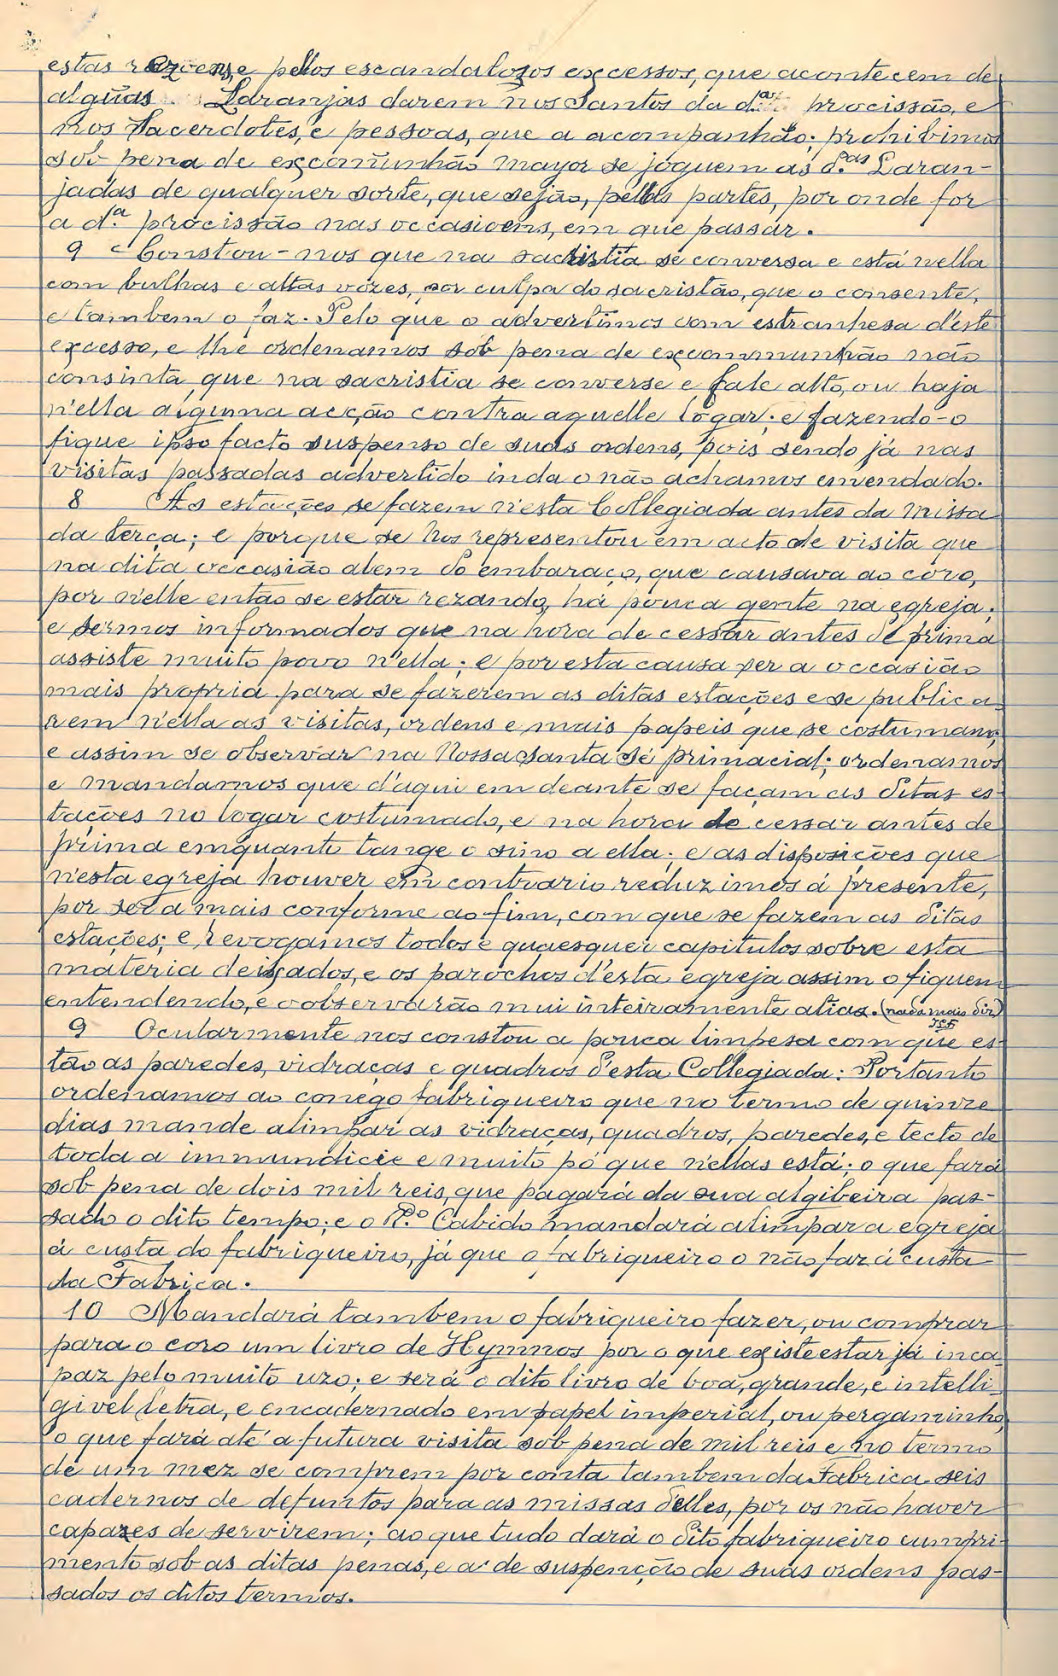 estas razoens, e pellos escandalozos excessos, que acontecem de
algũas Laranjas darem nos Santos da d.ª procissão, e
nos Sacerdotes, e pessoas, que a acompanhão; prohibimos
sob pena de excomunhão mayor se joguem as d.as Laran-
jadas de qualquer sorte, que sejão, pellas partes, por onde for
a d.ª procissão nas occasioens, em que passar.
9 Constou-nos que na sacristia se conversa e está nella
com bulhas e altas vozes, por culpa do sacristão, que o consente,
e tambem o faz. Pelo que o advertimos com estranhesa d'este
excesso, e lhe ordenamos sob pena de excommunhão não
consinta que na sacristia se converse e fale alto, ou haja
n'ella alguma acção contra aquelle logar; e fazendo-o
fique ipso facto suspenso de suas ordens, pois sendo já nas
visitas passadas advertido inda o não achamos emendado.
8 As estações se fazem n'esta Collegiada antes da missa
da terça; e porque se Nos representou em acto de visita que
na dita occasião alem do embaraço, que causava ao côro,
por n'elle então se estar rezando, há pouca gente na egreja;
e sermos informados que na hora de cessar antes de prima
assiste muito povo n'ella; e por esta causa ser a occasião
mais propria para se fazerem as ditas estações e se publica-
rem n'ella as visitas, ordens e mais papeis que se costumam,
e assim se observar na Nossa santa Sé primacial; ordenamos
e mandamos que d'aqui em deante se façam as ditas es-
tações no logar costumado, e na hora de cessar antes de
prima emquanto tange o sino a ella; e as disposições que
n'esta egreja houver em contrario reduzimos á presente,
por ser a mais conforme ao fim, com que se fazem as ditas
estações; e revogamos todos e quaesquer capitulos sobre esta
materia deixados, e os parochos d'esta egreja assim o fiquem
entendendo, e observarão mui inteiramente alias. (nada mais diz)
9 Ocularmente nos constou a pouca limpesa com que es-
tão as paredes, vidraças e quadros d'esta Collegiada: Portanto
ordenamos ao conego fabriqueiro que no termo de quinze
dias mande alimpar as vidraças, quadros, paredes, e tecto de
toda a immundicie e muito pó que n'ellas está; o que fará
sob pena de dois mil reis, que pagará da sua algibeira pas-
sado o dito tempo; e o R.do Cabido mandará alimpar a egreja
á custa do fabriqueiro, já que o fabriqueiro o não faz á custa
da Fabrica.
10 Mandará tambem o fabriqueiro fazer, ou comprar
para o coro um livro de Hymnos por o que existe estar já inca-
paz pelo muito uzo; e será o dito livro de boa, grande, e intelli-
givel letra, e encadernado em papel imperial, ou pergaminho,
o que fará até a futura visita sob pena de mil reis e no termo
de um mez se comprem por conta tambem da Fabrica seis
cadernos de defuntos para as missas d'elles, por os não haver
capazes de servirem; ao que tudo dará o dito fabriqueiro cumpri-
mento sob as ditas penas, e a de suspenção de suas ordens pas-
sados os ditos termos.